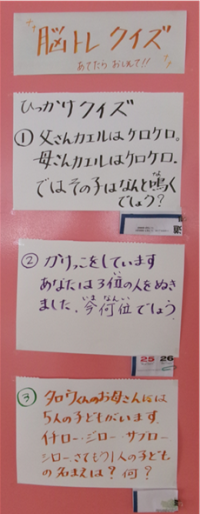 脳トレ クイズ
あてたら おしえて!!
ひっかけクイズ
① 父さんカエルはケロケロ。
母さんカエルはケロケロ。
ではその子はなんと鳴く
でしょう?
② かけっこをしています
あなたは3位の人をぬき
ました。今何位でしょう
25 26
③ タロウくんのお母さんには
5人の子どもがいます。
イチロー・ジロー・サブロー
シロー、さてもう1人の子ども
の名まえは?何?